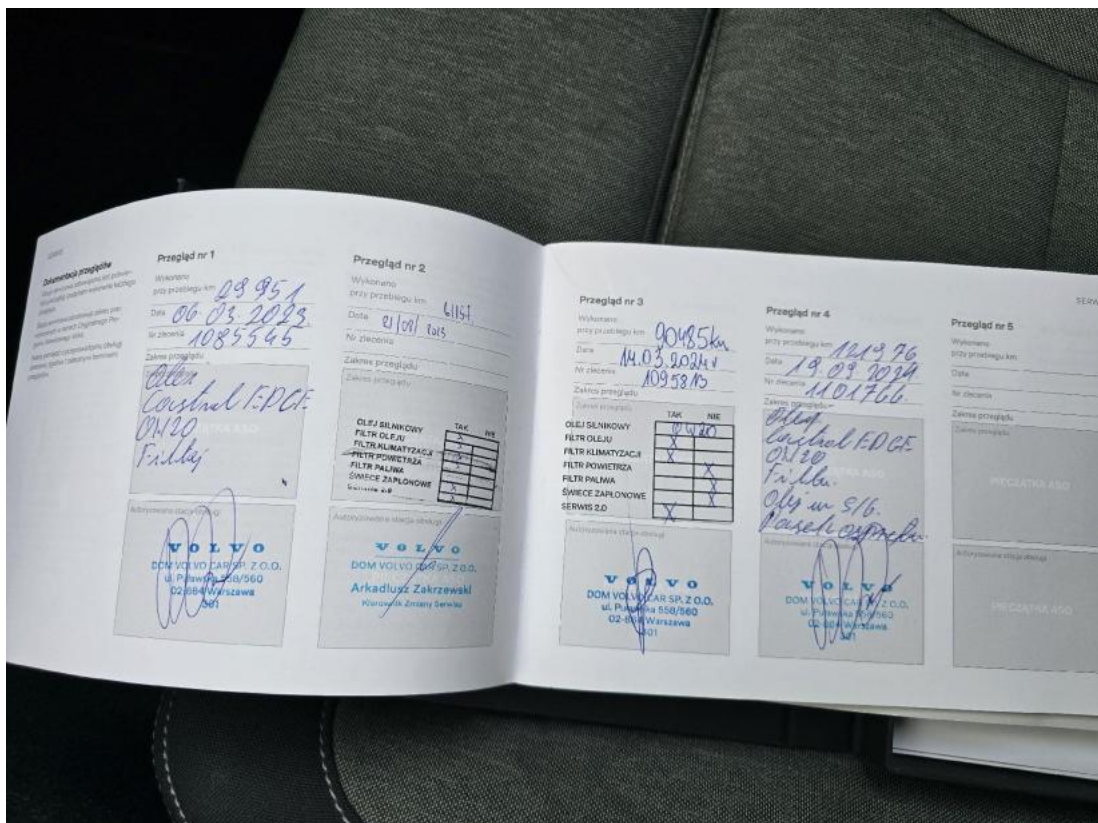 Dokumentacja przeglądów
Przegląd nr 1
Wykonano
przy przebiegu km 29 951
Data 06.03.2023
Nr zlecenia 1085545
Zakres przeglądu
Olej
Castrol EDGE
0W20
Filtry
Autoryzowana stacja obsługi
VOLVO
DOM VOLVO CAR SP. Z O.O.
ul. Puławska 558/560
02-884 Warszawa
301
Przegląd nr 2
Wykonano
przy przebiegu km
Data 21/08/2023
Nr zlecenia
Zakres przeglądu
Zakres przeglądu
TAK NIE
OLEJ SILNIKOWY X
FILTR OLEJU X
FILTR KLIMATYZACJI X
FILTR POWIETRZA
FILTR PALIWA
ŚWIECE ZAPŁONOWE X
Autoryzowana stacja obsługi
VOLVO
DOM VOLVO CAR SP. Z O.O.
Arkadiusz Zakrzewski
Kierownik Zmiany Serwisu
Przegląd nr 3
Wykonano
przy przebiegu km 90485km
Data 14.03.2024r
Nr zlecenia 1095813
Zakres przeglądu
Zakres przeglądu
TAK NIE
OLEJ SILNIKOWY 0W20
FILTR OLEJU X
FILTR KLIMATYZACJI X
FILTR POWIETRZA X
FILTR PALIWA X
ŚWIECE ZAPŁONOWE X
SERWIS 2.0 X
Autoryzowana stacja obsługi
VOLVO
DOM VOLVO CAR SP. Z O.O.
ul. Puławska 558/560
02-884 Warszawa
301
SERW
Przegląd nr 4
Wykonano
przy przebiegu km 121976
Data 19.09.2024
Nr zlecenia 1101766
Zakres przeglądu
Olej
Castrol EDGE
0W20
Filtr
Olej w S/G.
Pasek osprzętu
VOLVO
DOM VOLVO CAR SP. Z O.O.
ul. Puławska 558/560
02-884 Warszawa
301
Przegląd nr 5
Wykonano
przy przebiegu km
Data
Nr zlecenia
Zakres przeglądu
Zakres przeglądu
PIECZĄTKA ASO
Autoryzowana stacja obsługi
PIECZĄTKA ASO